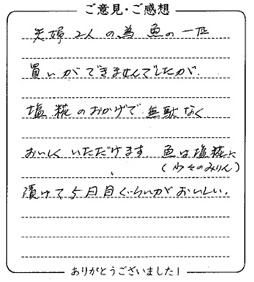 ご意見・ご感想
夫婦2人の為魚の一匹
買いができませんでしたが
塩糀のおかげで無駄なく
おいしくいただけます 魚は塩糀に
(少々のみりん)
漬けて5日目ぐらいがおいしい。
ありがとうございました!